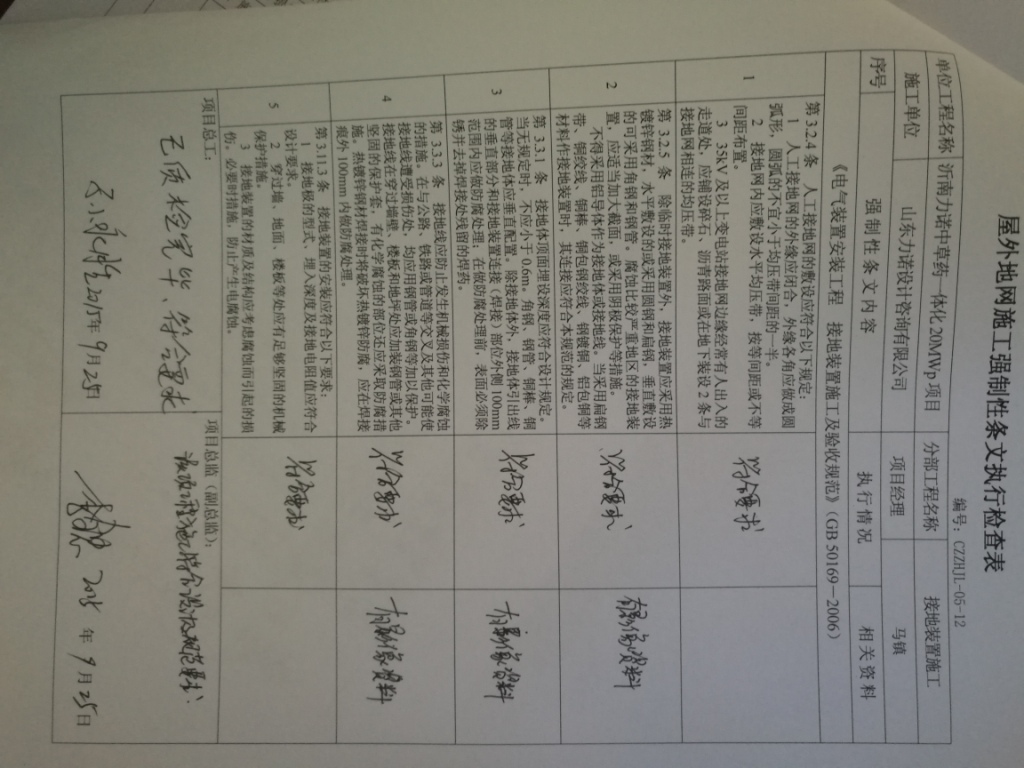 屋外地网施工强制性条文执行检查表
编号：CZZHJL-05-12
单位工程名称 济南力诺中草药一体化20MWp项目 分部工程名称 接地装置施工
施工单位 山东力诺设计咨询有限公司 项目经理 马镇
序号 强制性条文内容 执行情况 相关资料
《电气装置安装工程 接地装置施工及验收规范》（GB 50169—2006）
1
第3.2.4条 人工接地网的敷设应符合以下规定：
1 人工接地网的外缘应闭合，外缘各角应做成圆
弧形，圆弧的不宜小于均压带间距的一半。
2 接地网内应敷设水平均压带，按等间距或不等
间距布置。
3 35kV及以上变电站接地网边缘经常有人出入的
走道处，应铺设碎石、沥青路面或在地下装设2条与
接地网相连的均压带。
符合要求
2
第3.2.5条 除临时接地装置外，接地装置应采用热
镀锌钢材，水平敷设的或采用圆钢和扁钢，垂直敷设
的可采用角钢和钢管，腐蚀比较严重地区的接地装
置，应适当加大截面，或采用阴极保护等措施。
不得采用铝导体作为接地体或接地线。当采用扁铜
带、铜绞线、铜棒、铜包钢绞线、铜镀钢、铝包铜等
材料作接地装置时，其连接应符合本规范的规定。
符合要求
有影像资料
3
第3.3.1条 接地体顶面埋设深度应符合设计规定。
当无规定时，不应小于0.6m。角钢、钢管、铜棒、铜
管等接地体应垂直配置。除接地体外，接地体引出线
的垂直部分和接地装置连接（焊接）部位外侧100mm
范围内应做防腐处理，在做防腐处理前，表面必须除
锈并去掉焊接处残留的焊药。
符合要求
有影像资料
4
第3.3.3条 接地线应防止发生机械损伤和化学腐蚀
的措施。在与公路、铁路或管道等交叉及其他可能使
接地线遭受损伤处，均应用钢管或角钢等加以保护。
接地线在穿过墙壁、楼板和地坪处应加装钢管或其他
坚固的保护套，有化学腐蚀的部位还应采取防腐措
施。热镀锌钢材焊接时将破坏热镀锌防腐，应在焊接
痕外100mm内做防腐处理。
符合要求
有影像资料
5
第3.11.3条 接地装置的安装应符合以下要求：
1 接地极的型式、埋入深度及接地电阻值应符合
设计要求。
2 穿过墙、地面、楼板等处应有足够坚固的机械
保护措施。
3 接地装置的材质及结构应考虑腐蚀而引起的损
伤，必要时措施，防止产生电腐蚀。
符合要求
项目总工：
已质检完毕，符合要求
2015年9月25日
项目总监（副总监）：
符合设计及规范要求
2015年9月25日